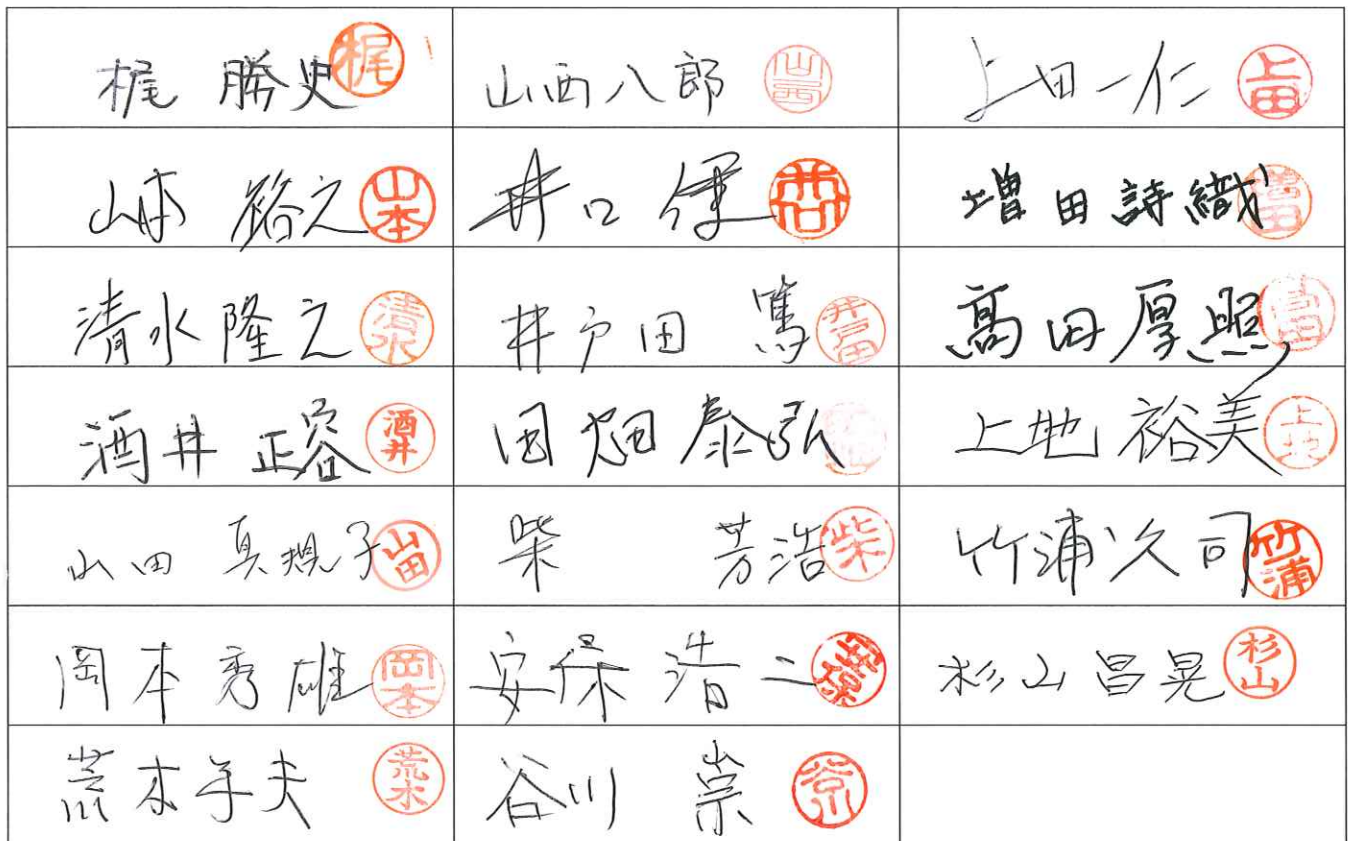 梶 勝史 梶 山西八郎 山西 上田一仁 上田
山本 裕之 山本 井口 健 井口 増田詩織 増田
清水隆之 清水 井戸田 篤 井戸田 高田厚照 高田
酒井 正容 酒井 田畑泰弘 田畑 上地 裕美 上地
山田 真規子 山田 柴 芳浩 柴 竹浦久司 竹浦
岡本秀雄 岡本 安保浩二 杉山昌晃 杉山
荒木孝夫 荒木 谷川 崇 谷川